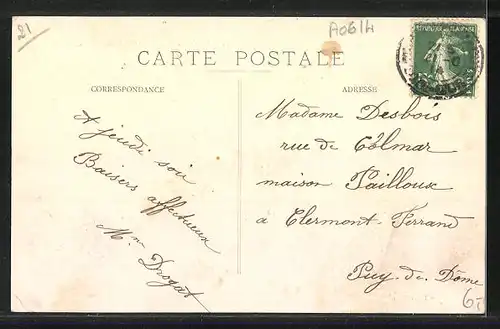 21
A0614
CARTE POSTALE
CORRESPONDANCE
ADRESSE
A jeudi soir
Baisers affectueux
Mme Drogat
Madame Desbois
rue de Colmar
maison Pailloux
à Clermont-Ferrand
Puy-de-Dôme
6.-